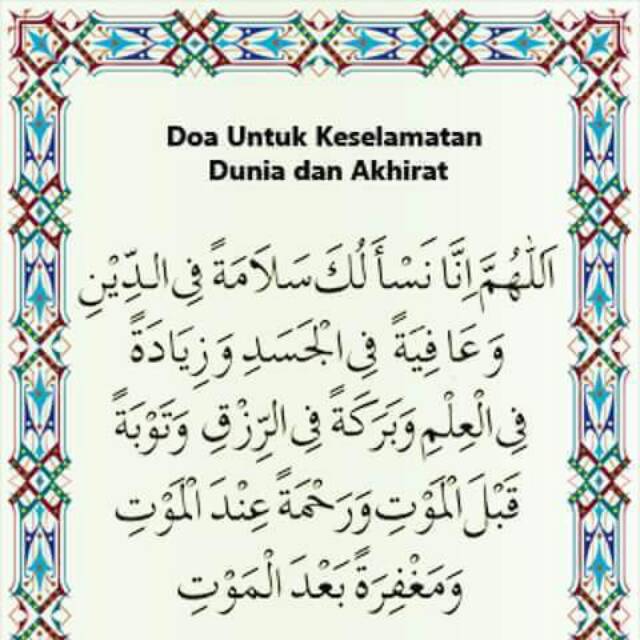 Doa Untuk Keselamatan
Dunia dan Akhirat
اَللّٰهُمَّ اِنَّا نَسْأَلُكَ سَلَامَةً فِى الدِّيْنِ
وَعَافِيَةً فِى الْجَسَدِ وَزِيَادَةً
فِى الْعِلْمِ وَبَرَكَةً فِى الرِّزْقِ وَتَوْبَةً
قَبْلَ الْمَوْتِ وَرَحْمَةً عِنْدَ الْمَوْتِ
وَمَغْفِرَةً بَعْدَ الْمَوْتِ